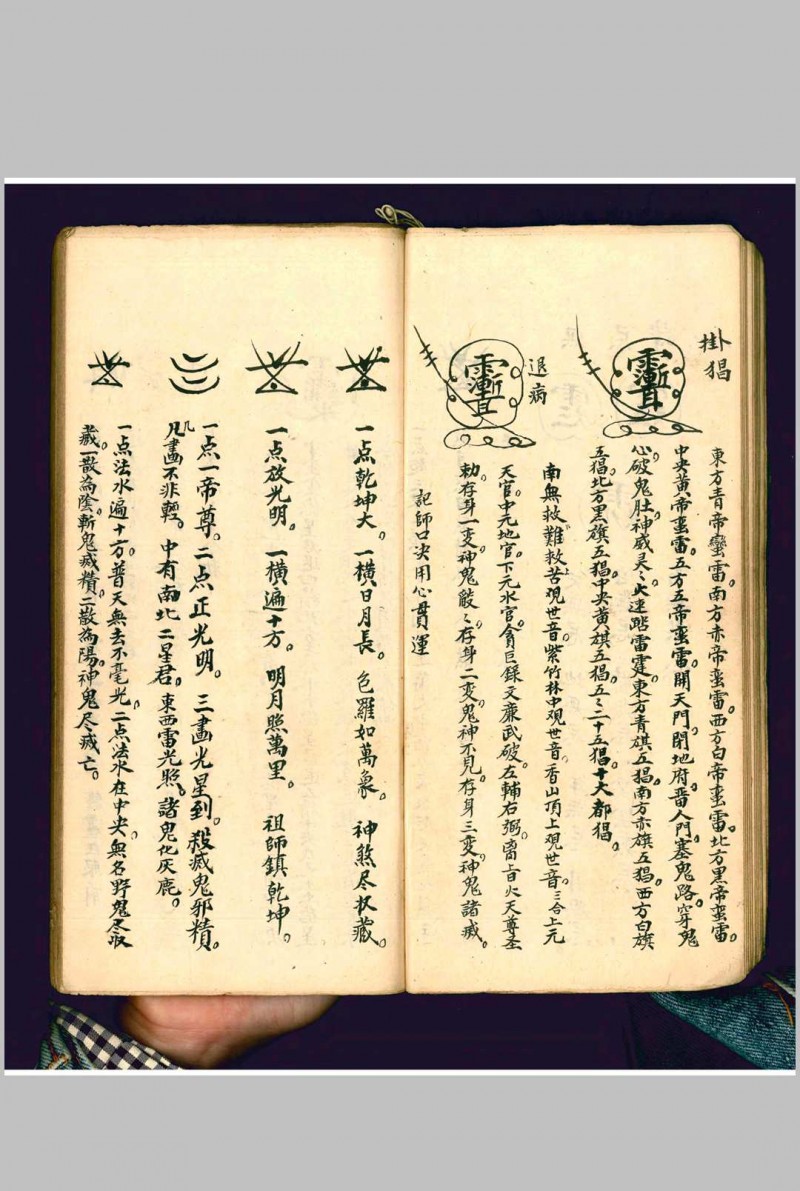 掛猖
東方青帝蠻雷。南方赤帝蛮雷。西方白帝蛮雷。北方黑帝蛮雷。
中央黄帝蛮雷。五方五帝蛮雷。開天門。閉地府。畱人門。塞鬼路。穿鬼
心。破鬼肚。神威灵〻。火速踏雷霆。東方青旗五猖。南方赤旗五猖。西方白旗
五猖。北方黑旗五猖。中央黄旗五猖。五〻二十五猖。十大都猖。
退病
南無救難救苦覌世音。紫竹林中覌世音。香山頂上覌世音。三合上元
天官。中元地官。下元水官。貪巨録文廉武破。左輔右弼。火天尊圣
勑。存身一变。神鬼〻。存身二变。鬼神不見。存身三变。神鬼諸滅。
記師口决用心貫運
一点乾坤大。一横日月長。包羅如萬象。神煞尽收藏。
一点放光明。一横遍十方。明月照萬里。祖師鎮乾坤。
一点一帝尊。二点正光明。三畫光星到。殺滅鬼邪精。
几畫不非輕。中有南北二星君。東西雷光照。諸鬼化灰鹿。
一点法水遍十方。普天無去不毫光。二点法水在中央。無名野鬼尽收
藏。一散為陰。斬鬼滅精。二散為陽。神鬼尽滅亡。